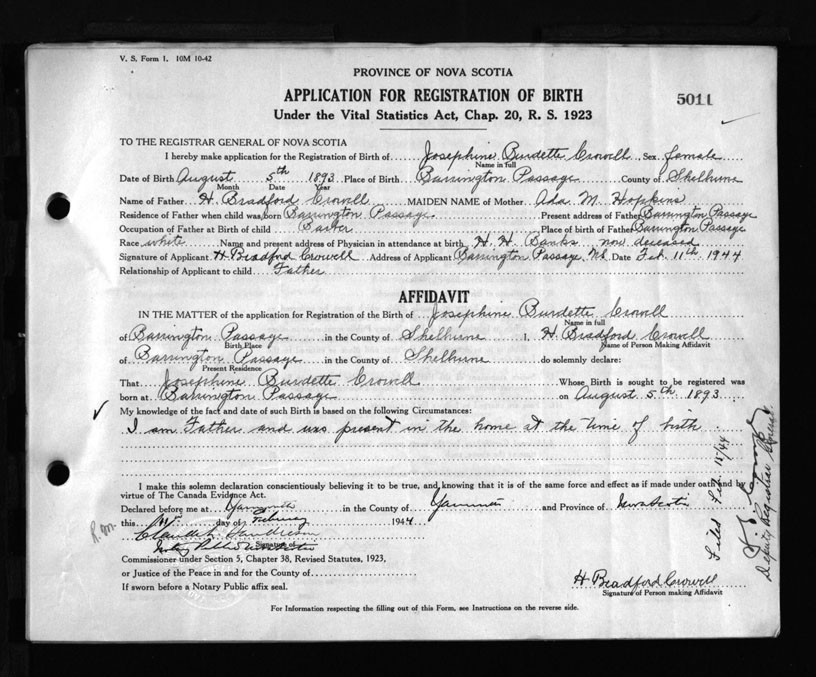 V. S. Form 1. 10M 10-42
PROVINCE OF NOVA SCOTIA
APPLICATION FOR REGISTRATION OF BIRTH
5011
Under the Vital Statistics Act, Chap. 20, R. S. 1923
TO THE REGISTRAR GENERAL OF NOVA SCOTIA
I hereby make application for the Registration of Birth of Josephine Burdette Crowell, Sex female
Name in full
Date of Birth August 5th 1893 Place of Birth Barrington Passage County of Shelburne
Month Date Year
Name of Father H. Bradford Crowell MAIDEN NAME of Mother Ada M. Hopkins
Residence of Father when child was born Barrington Passage Present address of Father Barrington Passage
Occupation of Father at Birth of child Barber Place of birth of Father Barrington Passage
Race white Name and present address of Physician in attendance at birth H. H. Banks now deceased
Signature of Applicant H Bradford Crowell Address of Applicant Barrington Passage, NS Date Feb. 11th 1944
Relationship of Applicant to child Father
AFFIDAVIT
IN THE MATTER of the application for Registration of the Birth of Josephine Burdette Crowell
Name in full
of Barrington Passage in the County of Shelburne I, H Bradford Crowell
Birth Place Name of Person Making Affidavit
of Barrington Passage in the County of Shelburne do solemnly declare:
Present Residence
That Josephine Burdette Crowell Whose Birth is sought to be registered was
born at Barrington Passage on August 5th 1893
My knowledge of the fact and date of such Birth is based on the following Circumstances:
I am Father and was present in the home at the time of birth.
I make this solemn declaration conscientiously believing it to be true, and knowing that it is of the same force and effect as if made under oath and by
virtue of The Canada Evidence Act.
Declared before me at Yarmouth in the County of Yarmouth and Province of Nova Scotia
this day of February 1944
Signature of
Commissioner under Section 5, Chapter 38, Revised Statutes, 1923,
or Justice of the Peace in and for the County of
If sworn before a Notary Public affix seal.
H Bradford Crowell
Signature of Person making Affidavit
For Information respecting the filling out of this Form, see Instructions on the reverse side.
R.M.
Filed Feb. 15/44
Deputy Registrar General